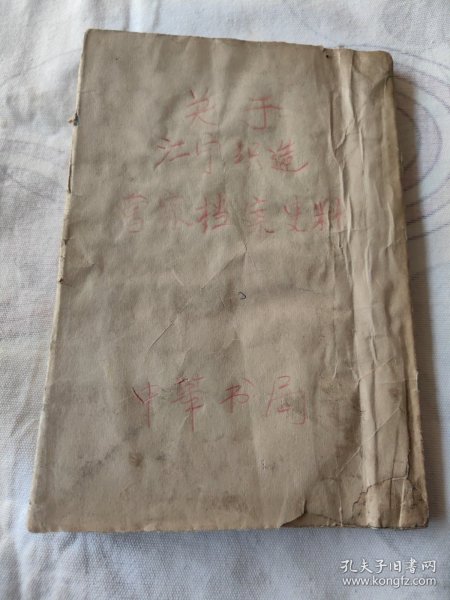 关于
江宁织造
曹家档案史料
中华书局
孔夫子旧书网
www.kongfz.com